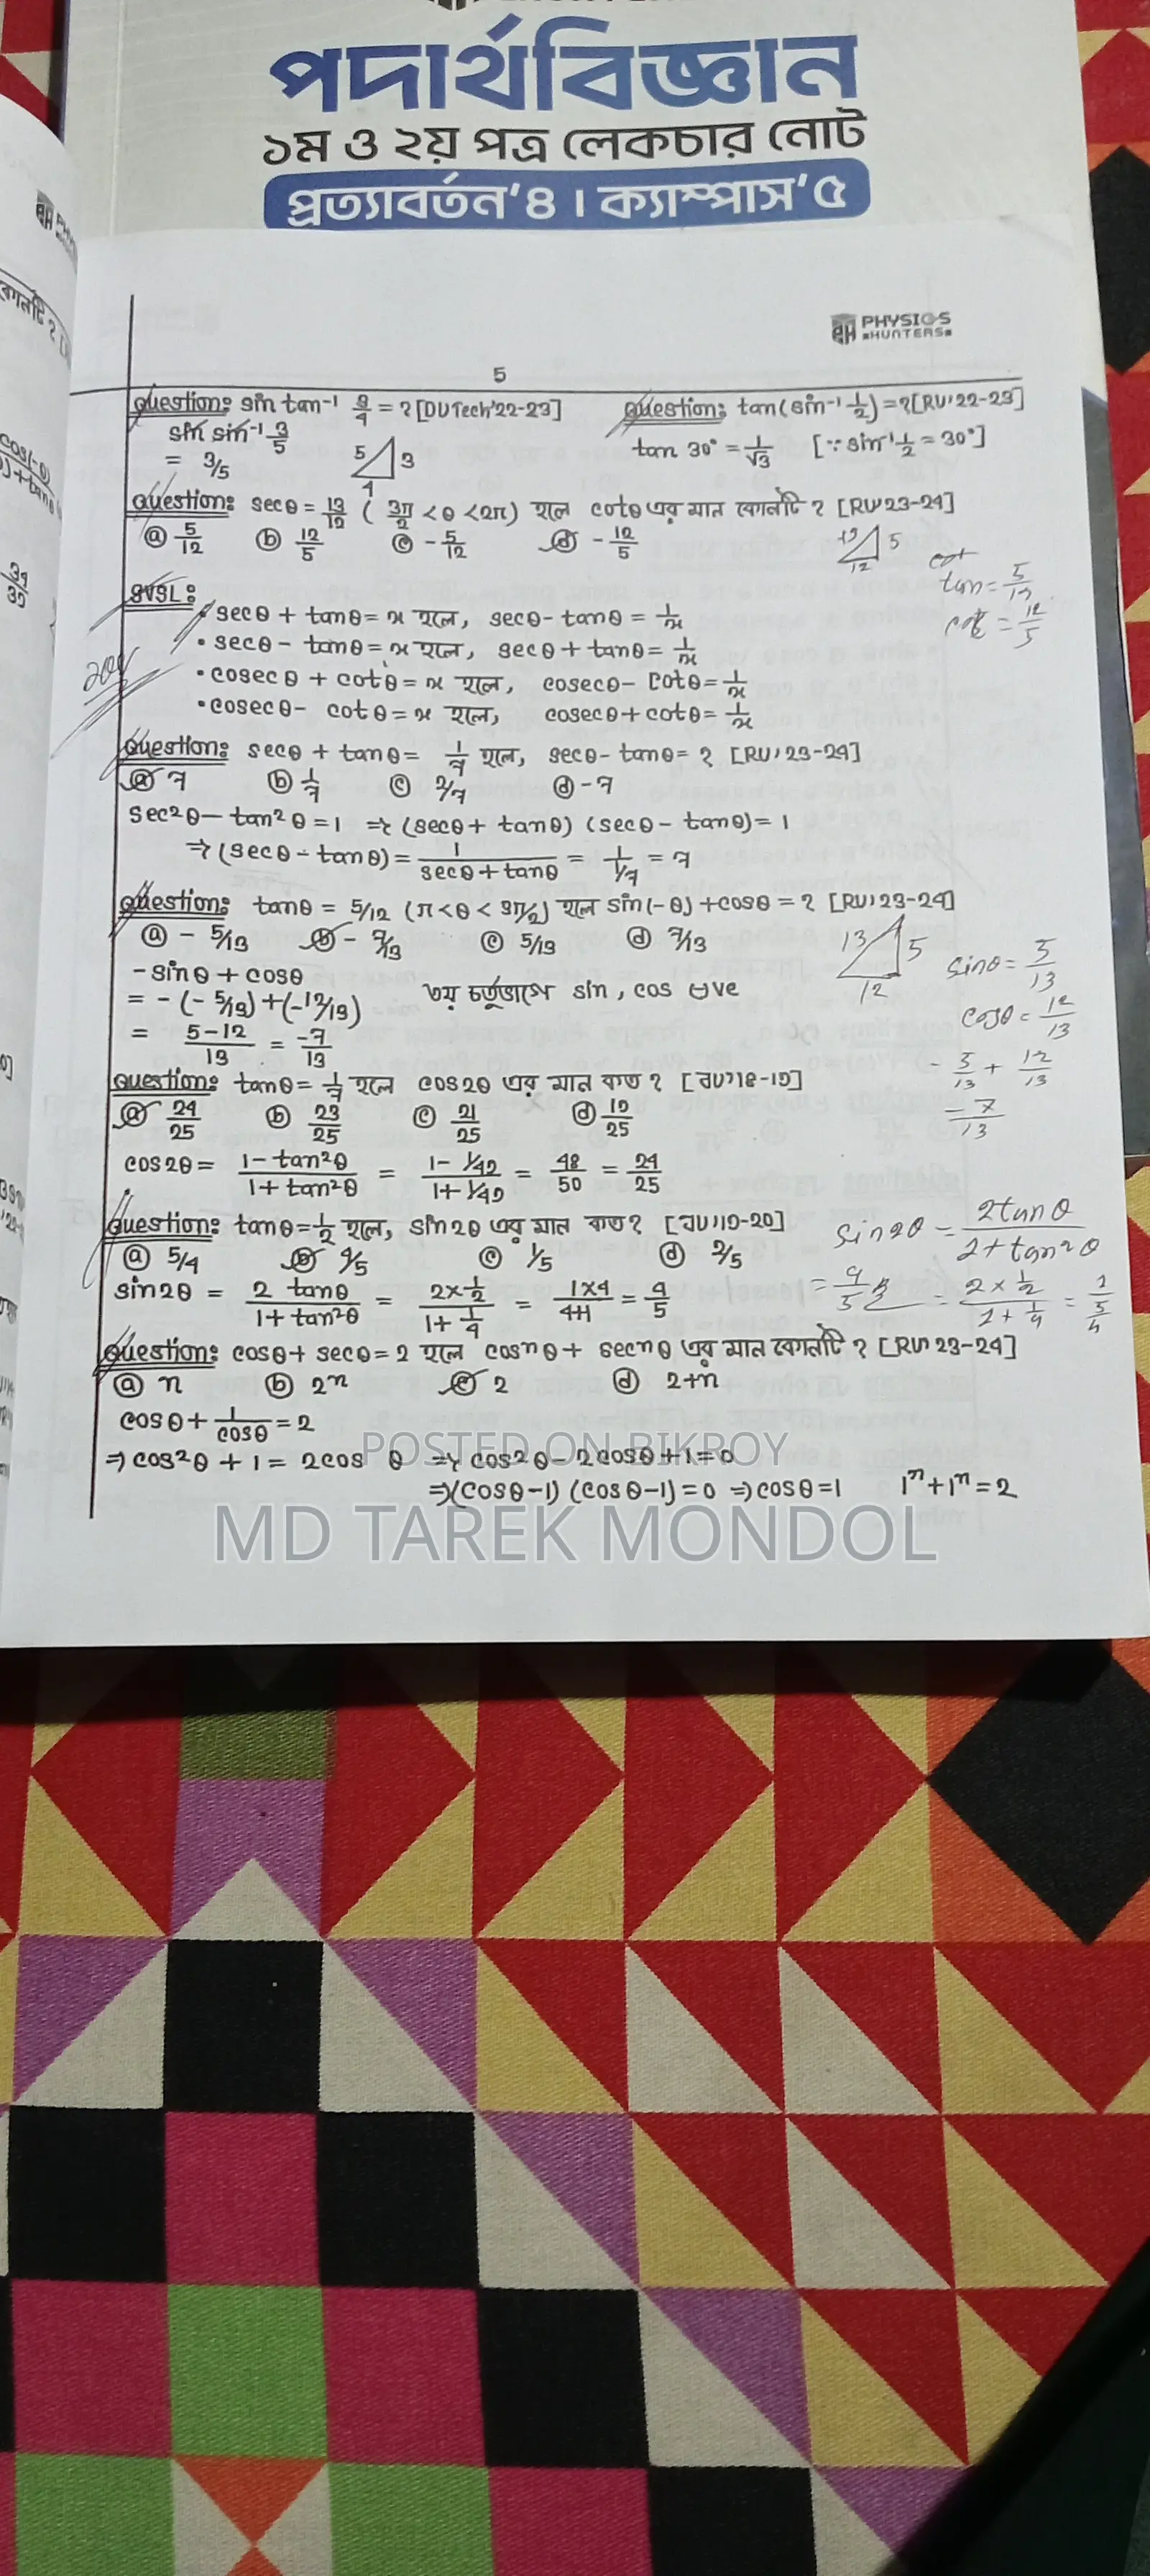 পদার্থবিজ্ঞান
১ম ও ২য় পত্র লেকচার নোট
প্রত্যাবর্তন'৪ । ক্যাম্পাস'৫
PHYSICS
HUNTERS
5
Question: sin tan⁻¹ 3/4 = ? [DU Tech'22-23]
sin sin⁻¹ 3/5
= 3/5
5 3
4
Question: tan(sin⁻¹ 1/2) = ? [RU'22-23]
tan 30° = 1/√3 [∵ sin⁻¹ 1/2 = 30°]
Question: secθ = 13/12 ( 3π/2 < θ < 2π) হলে cotθ এর মান কোনটি ? [RU'23-24]
ⓐ 5/12 ⓑ 12/5 ⓒ - 5/12 ⓓ - 12/5
13 5
12
cot
tan = 5/12
cot = 12/5
SVSL:
• secθ + tanθ = x হলে, secθ - tanθ = 1/x
• secθ - tanθ = x হলে, secθ + tanθ = 1/x
• cosecθ + cotθ = x হলে, cosecθ - cotθ = 1/x
• cosecθ - cotθ = x হলে, cosecθ + cotθ = 1/x
Question: secθ + tanθ = 1/7 হলে, secθ - tanθ = ? [RU'23-24]
ⓐ 7 ⓑ 1/7 ⓒ 2/7 ⓓ -7
sec²θ - tan²θ = 1 ⇒ (secθ + tanθ) (secθ - tanθ) = 1
⇒ (secθ - tanθ) = 1/(secθ + tanθ) = 1/(1/7) = 7
Question: tanθ = 5/12 (π < θ < 3π/2) হলে sin(-θ) + cosθ = ? [RU'23-24]
ⓐ - 5/13 ⓑ - 7/13 ⓒ 5/13 ⓓ 7/13
13 5
12
sinθ = 5/13
cosθ = 12/13
- 5/13 + 12/13
- 7/13
-sinθ + cosθ
= - (- 5/13) + (-12/13) ৩য় চর্তুভাগে sin, cos ⊖ve
= (5-12)/13 = -7/13
Question: tanθ = 1/7 হলে cos2θ এর মান কত ? [চবি'18-19]
ⓐ 24/25 ⓑ 23/25 ⓒ 21/25 ⓓ 19/25
cos2θ = (1-tan²θ)/(1+tan²θ) = (1-1/49)/(1+1/49) = 48/50 = 24/25
Question: tanθ = 1/2 হলে, sin2θ এর মান কত? [চবি'19-20]
ⓐ 5/4 ⓑ 4/5 ⓒ 1/5 ⓓ 2/5
sin2θ = (2 tanθ)/(1+tan²θ) = (2×1/2)/(1+1/4) = (1×4)/(4+1) = 4/5
sin2θ = 2tanθ/(1+tan²θ)
= (2×1/2)/(1+1/4) = 1/(5/4)
= 4/5
Question: cosθ + secθ = 2 হলে cosⁿθ + secⁿθ এর মান কোনটি ? [RU'23-24]
ⓐ n ⓑ 2ⁿ ⓒ 2 ⓓ 2+n
cosθ + 1/cosθ = 2
⇒ cos²θ + 1 = 2cosθ ⇒ cos²θ - 2cosθ + 1 = 0
⇒ (cosθ-1) (cosθ-1) = 0 ⇒ cosθ = 1 1ⁿ + 1ⁿ = 2
POSTED ON BIKROY
MD TAREK MONDOL